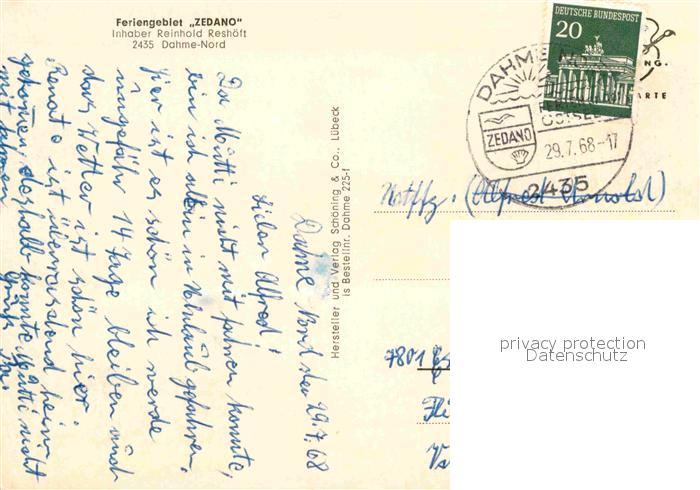 Feriengebiet „ZEDANO"
Inhaber Reinhold Reshöft
2435 Dahme-Nord
Dahme Nord den 29.7.68
Lieber Alfred!
Da Mutti nicht mit fahren konnte,
bin ich allein in Urlaub gefahren.
Hier ist es schön ich werde
ungefähr 14 Tage bleiben auch
das Wetter ist schön hier.
Renate ist überraschend heim
gekommen, deshalb konnte Mutti nicht
mit fahren
Hersteller und Verlag Schöning & Co., Lübeck
is Bestellnr. Dahme 225-f
DEUTSCHE BUNDESPOST
20
DAHME
OSTSEE
ZEDANO
29.7.68-17
2435
NG.
ARTE
(Alfred Arnold)
7801
privacy protection
Datenschutz